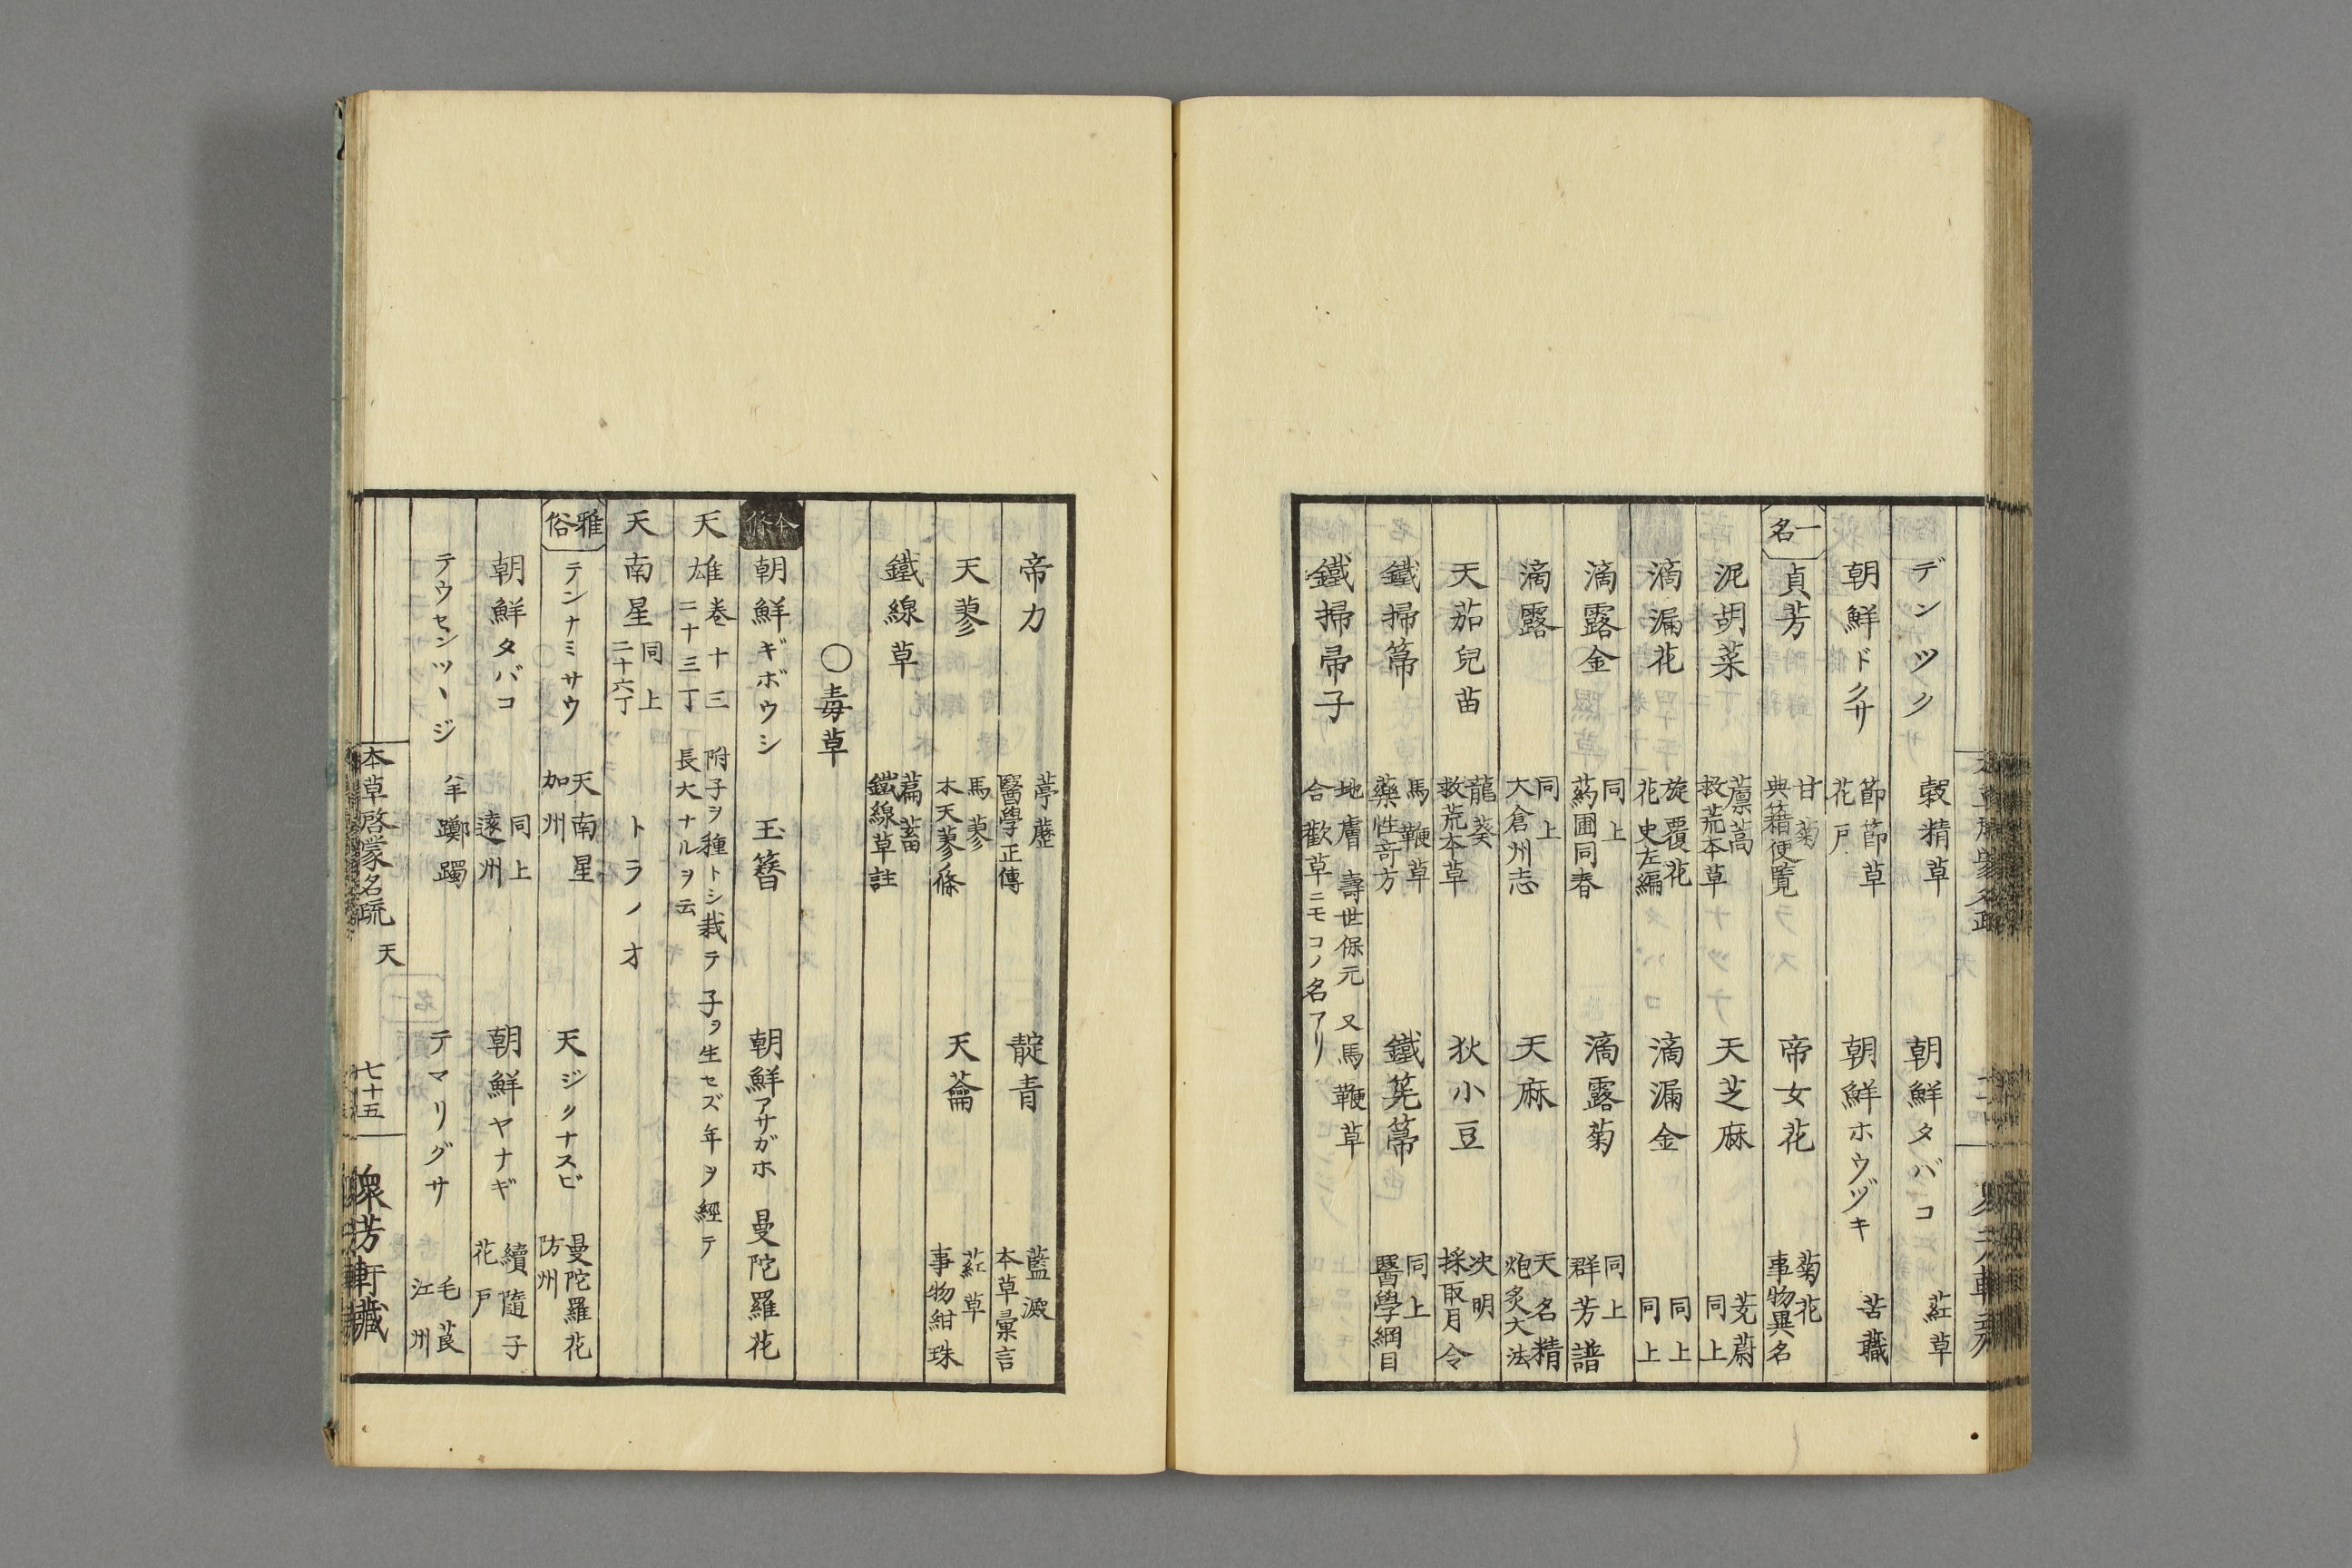 デンツク 穀精草 朝鮮タバコ 葒草
朝鮮ドクサ 節節草 花戸 朝鮮ホウヅキ 苦蘵
一名 貞芳 甘菊 典籍便覧 帝女花 菊花 事物異名
泥胡菜 藁蒿 救荒本草 天芝麻 茺蔚 同上
滴漏花 旋覆花 花史左編 滴漏金 同上 同上
滴露金 同上 葯圃同春 滴露菊 同上 群芳譜
滴露 同上 大倉州志 天麻 天名精 炮炙大法
天茄兒苗 龍葵 救荒本草 狄小豆 决明 採取月令
鐵掃箒 馬鞭草 藥性奇方 鐵筅箒 同上 醫學綱目
鐵掃帚子 地膚 壽世保元 又馬鞭草 合歡草ニモコノ名アリ
帝力 葶藶 醫學正傳 靛青 藍澱 本草彙言
天蓼 馬蓼 木天蓼條 天蘥 葒草 事物紺珠
鐵線草 萹蓄 鐵線草註
○毒草
本條 朝鮮ギボウシ 玉簪 朝鮮アサガホ 曼陀羅花
天雄 卷十三 二十三丁 附子ヲ種トシ栽テ子ヲ生セズ年ヲ經テ長大ナルヲ云
天南星 同上 二十六丁 トラノオ
雅俗 テンナミサウ 天南星 加州 天ジクナスビ 曼陀羅花 防州
朝鮮タバコ 同上 遠州 朝鮮ヤナギ 續隨子 花戸
テウセンツヽジ 羊躑躅 テマリグサ 毛莨 江州
本草啓蒙名疏 天 七十五 衆芳軒藏